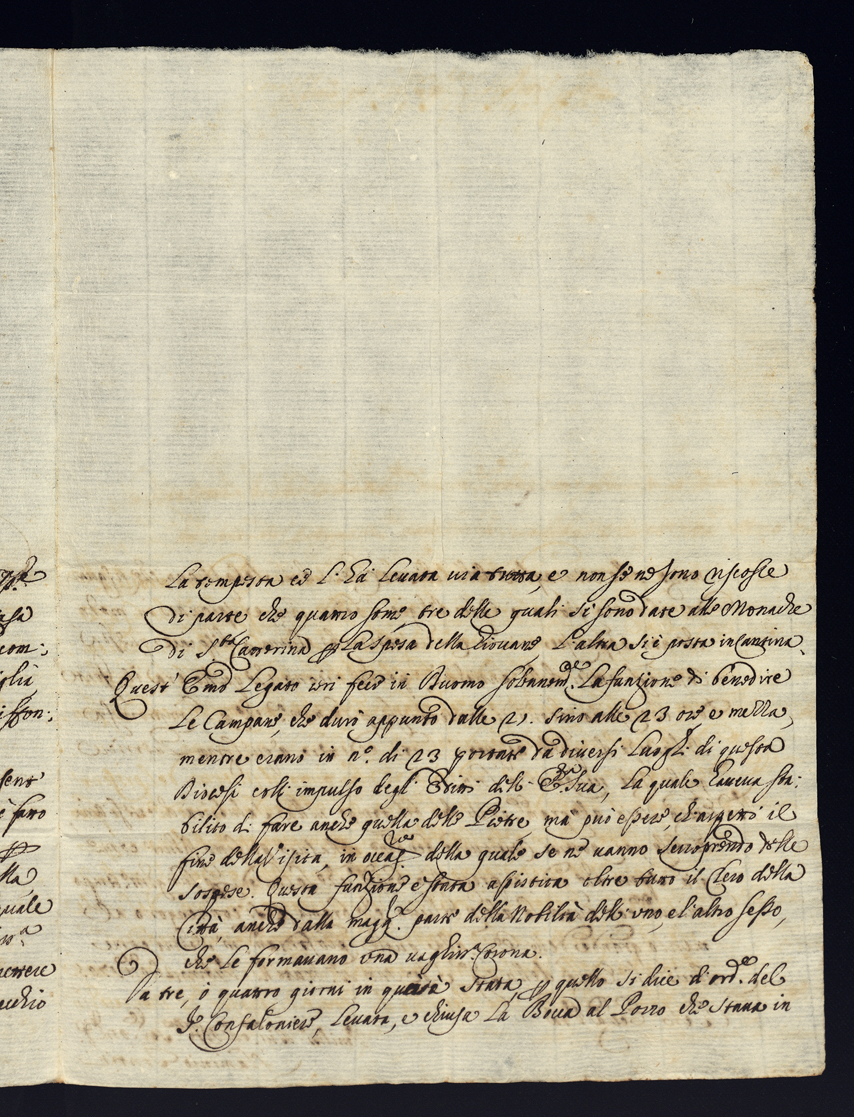 La tempesta ed l' ha levata via tutta, e non se ne sono riscosse
di parte che quattro some tre delle quali si sono date alle Monache
di S.ta Catterina p la spesa della Giovane L'altra si è posta in Cantina.
Quest' Emo Legato ieri fece in Duomo La funzione di benedire
Le Campane, che durò appunto dalle 21. sino alle 23 ore e mezza,
mentre erano in n°. di 23 portate da diversi Luoghi di questa
Diocesi coll' impulso degl' Editti dell' Sua, La quale haveva sta:
bilito di fare anche quella delle Pietre, mà può essere, ch'aspetti il
fine della Visita, in occa.ne della quale se ne vanno scoprendo delle
sospese. Questa funzione è stata assistita oltre tutto il Clero della
Città, anche dalla magg. parte della Nobiltà dell' uno, e l'altro sesso,
che Le formavano una corona.
Da tre, ò quattro giorni in quà è stata p quello si dice d'ord.e del
S.r Confaloniere, Levata, e chiusa La Buca al Porto che stava in
com:
iglià
quale
ecchio